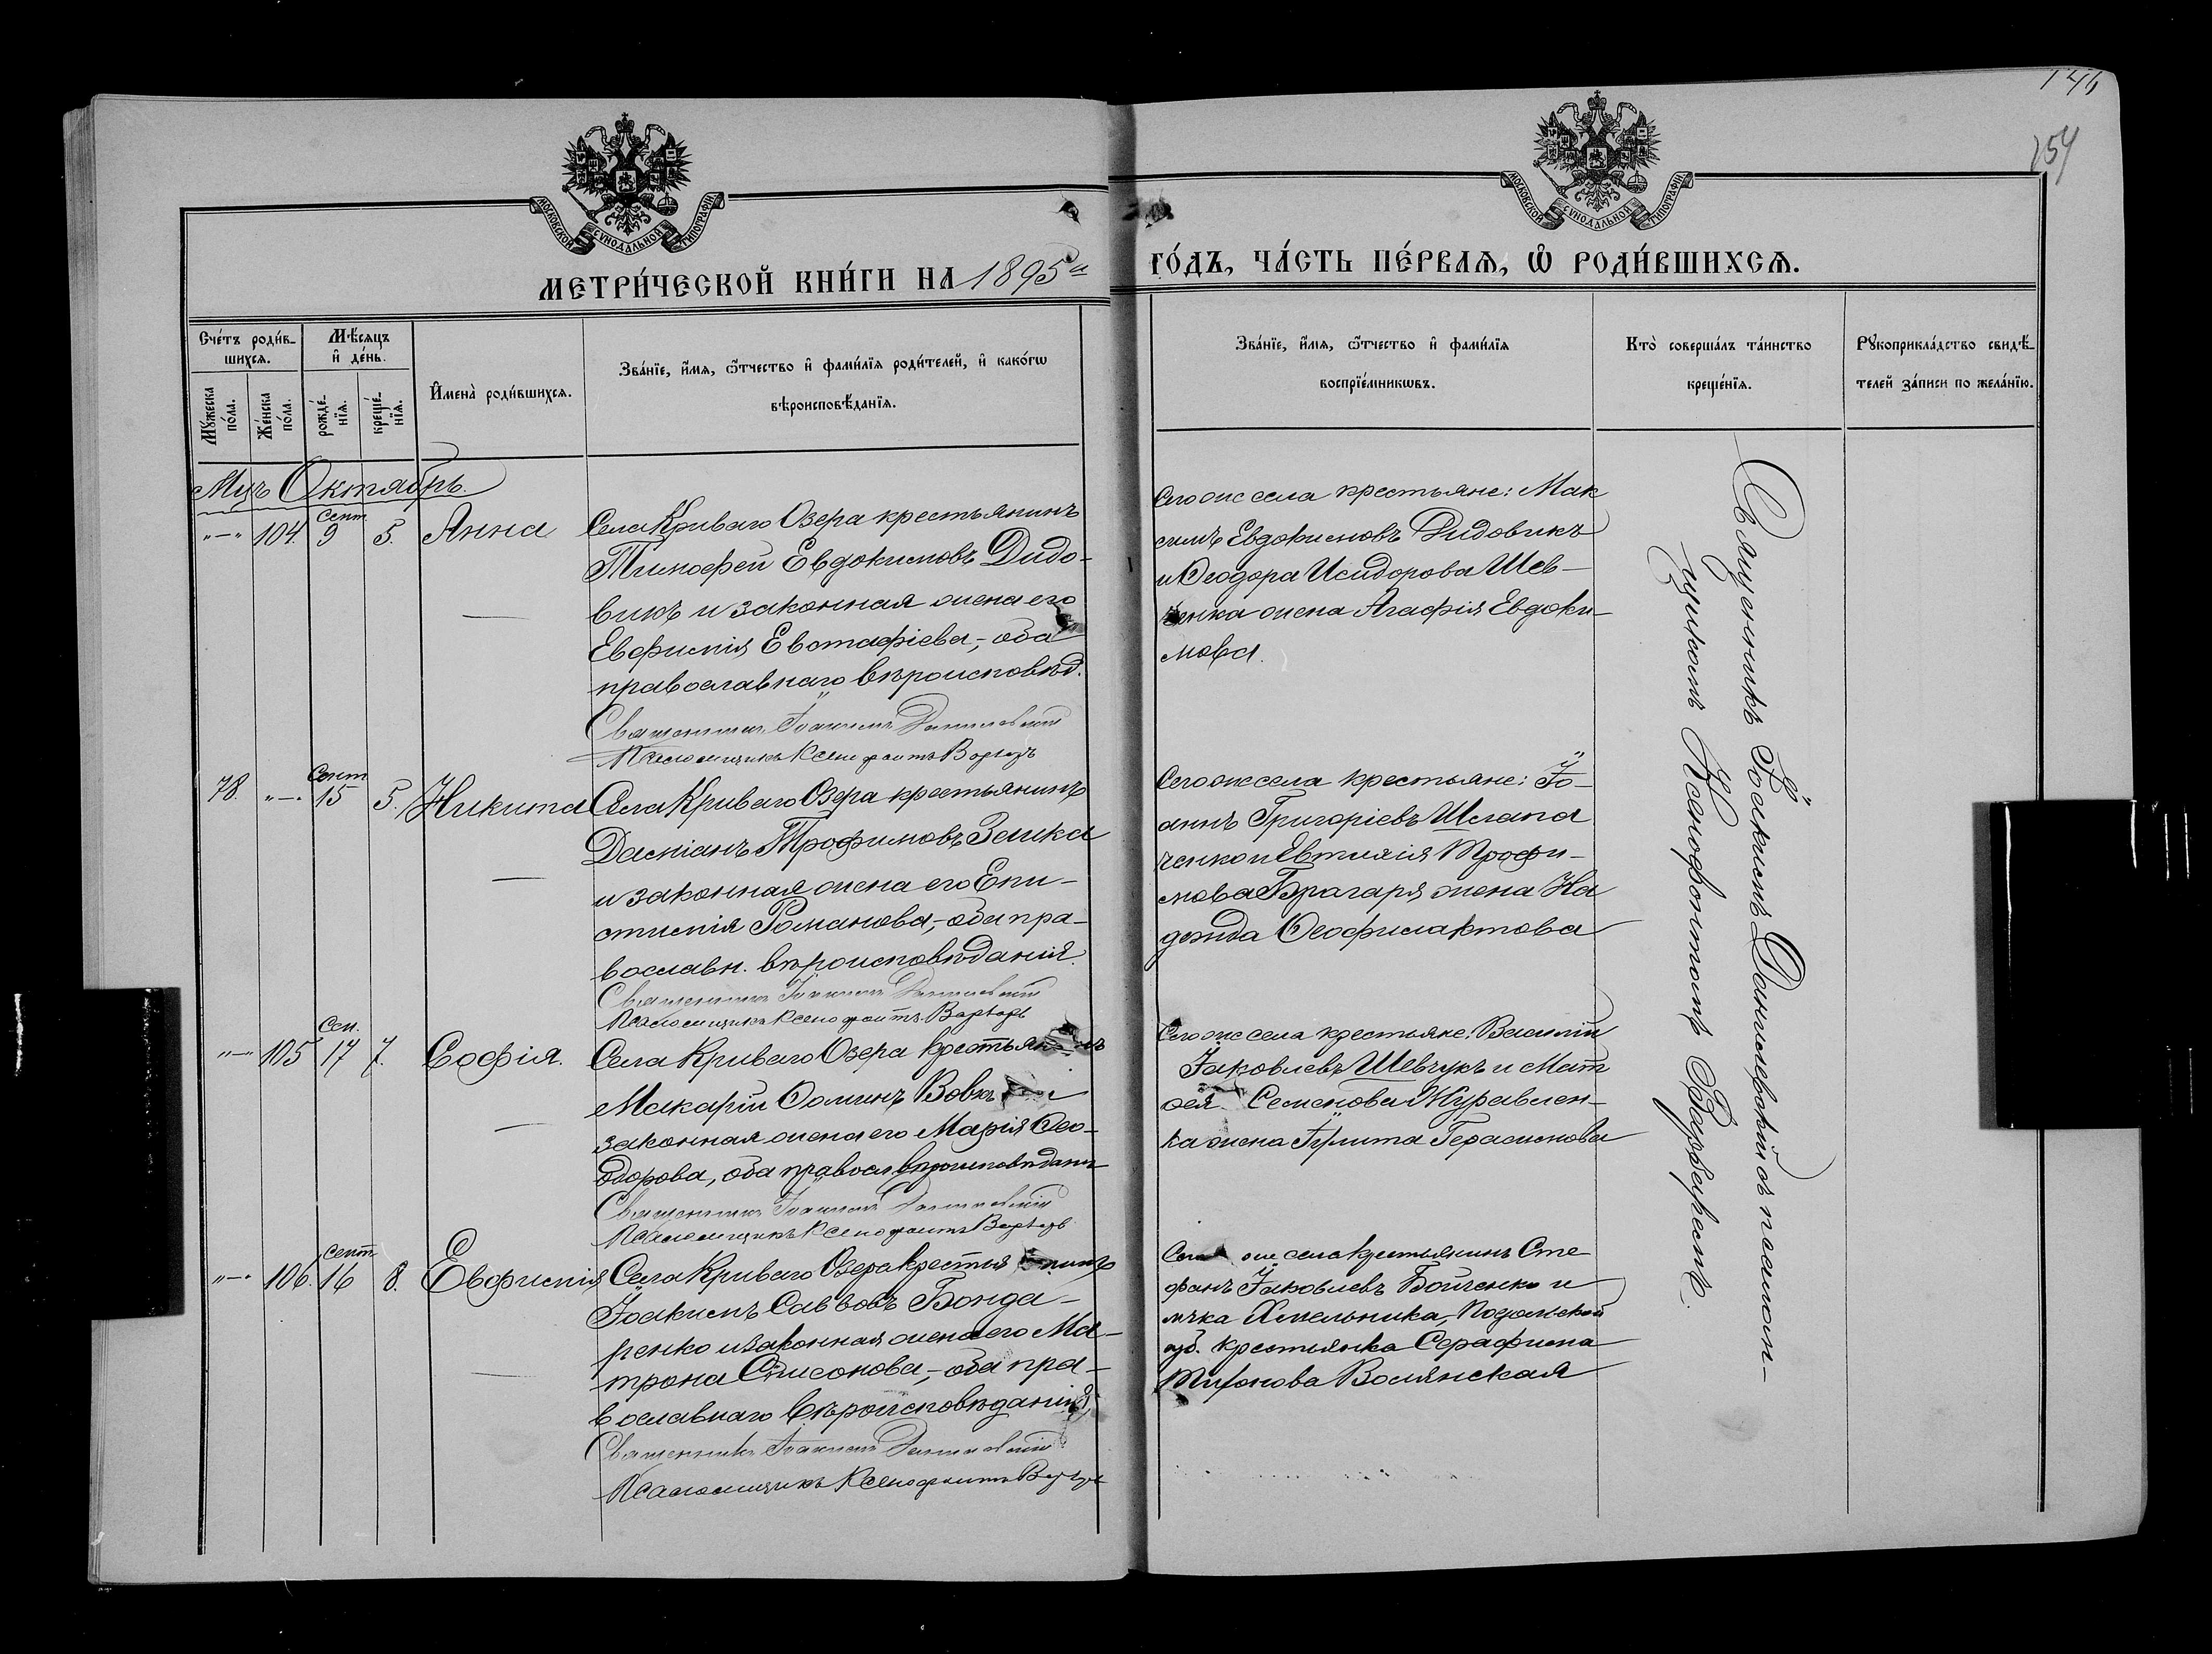 146
154
МОСКОВСКОЙ СѴНОДАЛЬНОЙ ТИПОГРАФІИ
МОСКОВСКОЙ СѴНОДАЛЬНОЙ ТИПОГРАФІИ
МЕТРИ́ЧЕСКОЙ КНИ́ГИ НА 1895й ГО́ДЪ, ЧА́СТЬ ПЕ́РВАѦ, Ѡ҆ РОДИ́ВШИХСѦ.
Счéтъ роди́в-
шихсѧ.
Мꙋ́жеска по́ла.
Же́нска по́ла.
Мѣ́сѧцъ
и҆ де́нь.
рожде́-
нїѧ.
креще́-
нїѧ.
И҆мена̀ роди́вшихсѧ.
Зва́нїе, и҆́мѧ, ѻ҆́тчество и҆ фами́лїѧ роди́телей, и҆ како́гѡ
вѣроисповѣ́данїѧ.
Зва́нїе, и҆́мѧ, ѻ҆́тчество и҆ фами́лїѧ
воспрїе́мникѡвъ.
Кто̀ соверша́лъ та́инство
креще́нїѧ.
Рꙋкоприкла́дство свидѣ́-
телей за́писи по жела́нїю.
Мцъ Октябрь.
"—" 104. Сент. 9 5. Анна
Села Криваго Озера крестьянинъ
Тимофей Евдокимовъ Дидо-
викъ и законная жена его
Евфимія Евстафіева,- оба
православнаго вѣроисповѣд.
Священникъ Іоакимъ Данилевскій
Псаломщикъ Ксенофонтъ
Сегоже села крестьяне: Мак
симъ Евдокимовъ Дидовикъ
и Ѳеодора Исидорова Шев-
ченка жена Агафія Евдоки-
мова.
78. "—" Сент 15 5. Никита
Села Криваго Озера крестьянинъ
Даміанъ Трофимовъ Заика
и законная жена его Епи-
стимія Романова,- оба пра-
вославн. вѣроисповѣданія.
Священникъ Іоакимъ Данилевскій
Псаломщикъ Ксенофонтъ
Сегоже села крестьяне: Іо-
аннъ Григоріевъ
ченко и Евтихія Трофи-
мова Брагаря жена На
дежда Ѳеофилактова
"—" 105 Сен. 17 7. Софія.
Села Криваго Озера крестьянинъ
Макарій Ѳоминъ Вовк
законная жена его Марія Ѳео-
дорова, оба правосл вѣроисповѣдан
Священникъ Іоакимъ Данилевскій
Псаломщикъ Ксенофонтъ
Сегоже села крестьяне: Василій
Іаковлевъ Шевчукъ и Мат
ѳея Семенова Журавлен-
ка жена Іулита Герасимова
"—" 106. Сент 16 8. Евфимія
Села Криваго Озера крестья нинъ
Іоакимъ Саввовъ Бонда-
ренко и законная жена его Ма-
трона Самсонова,- оба пра-
вославнаго вѣроисповѣданія,
Священникъ Іоакимъ Данилевскій
Псаломщикъ Ксенофонтъ
же села крестьянинъ Сте
фанъ Іаковлевъ Бойченко и
мѣка Хмельника, Подольской
губ. крестьянка Серафима
Тихонова Волянская
Священникъ Іоакимъ Данилевскій съ псалом-
щикомъ Ксенофонтомъ